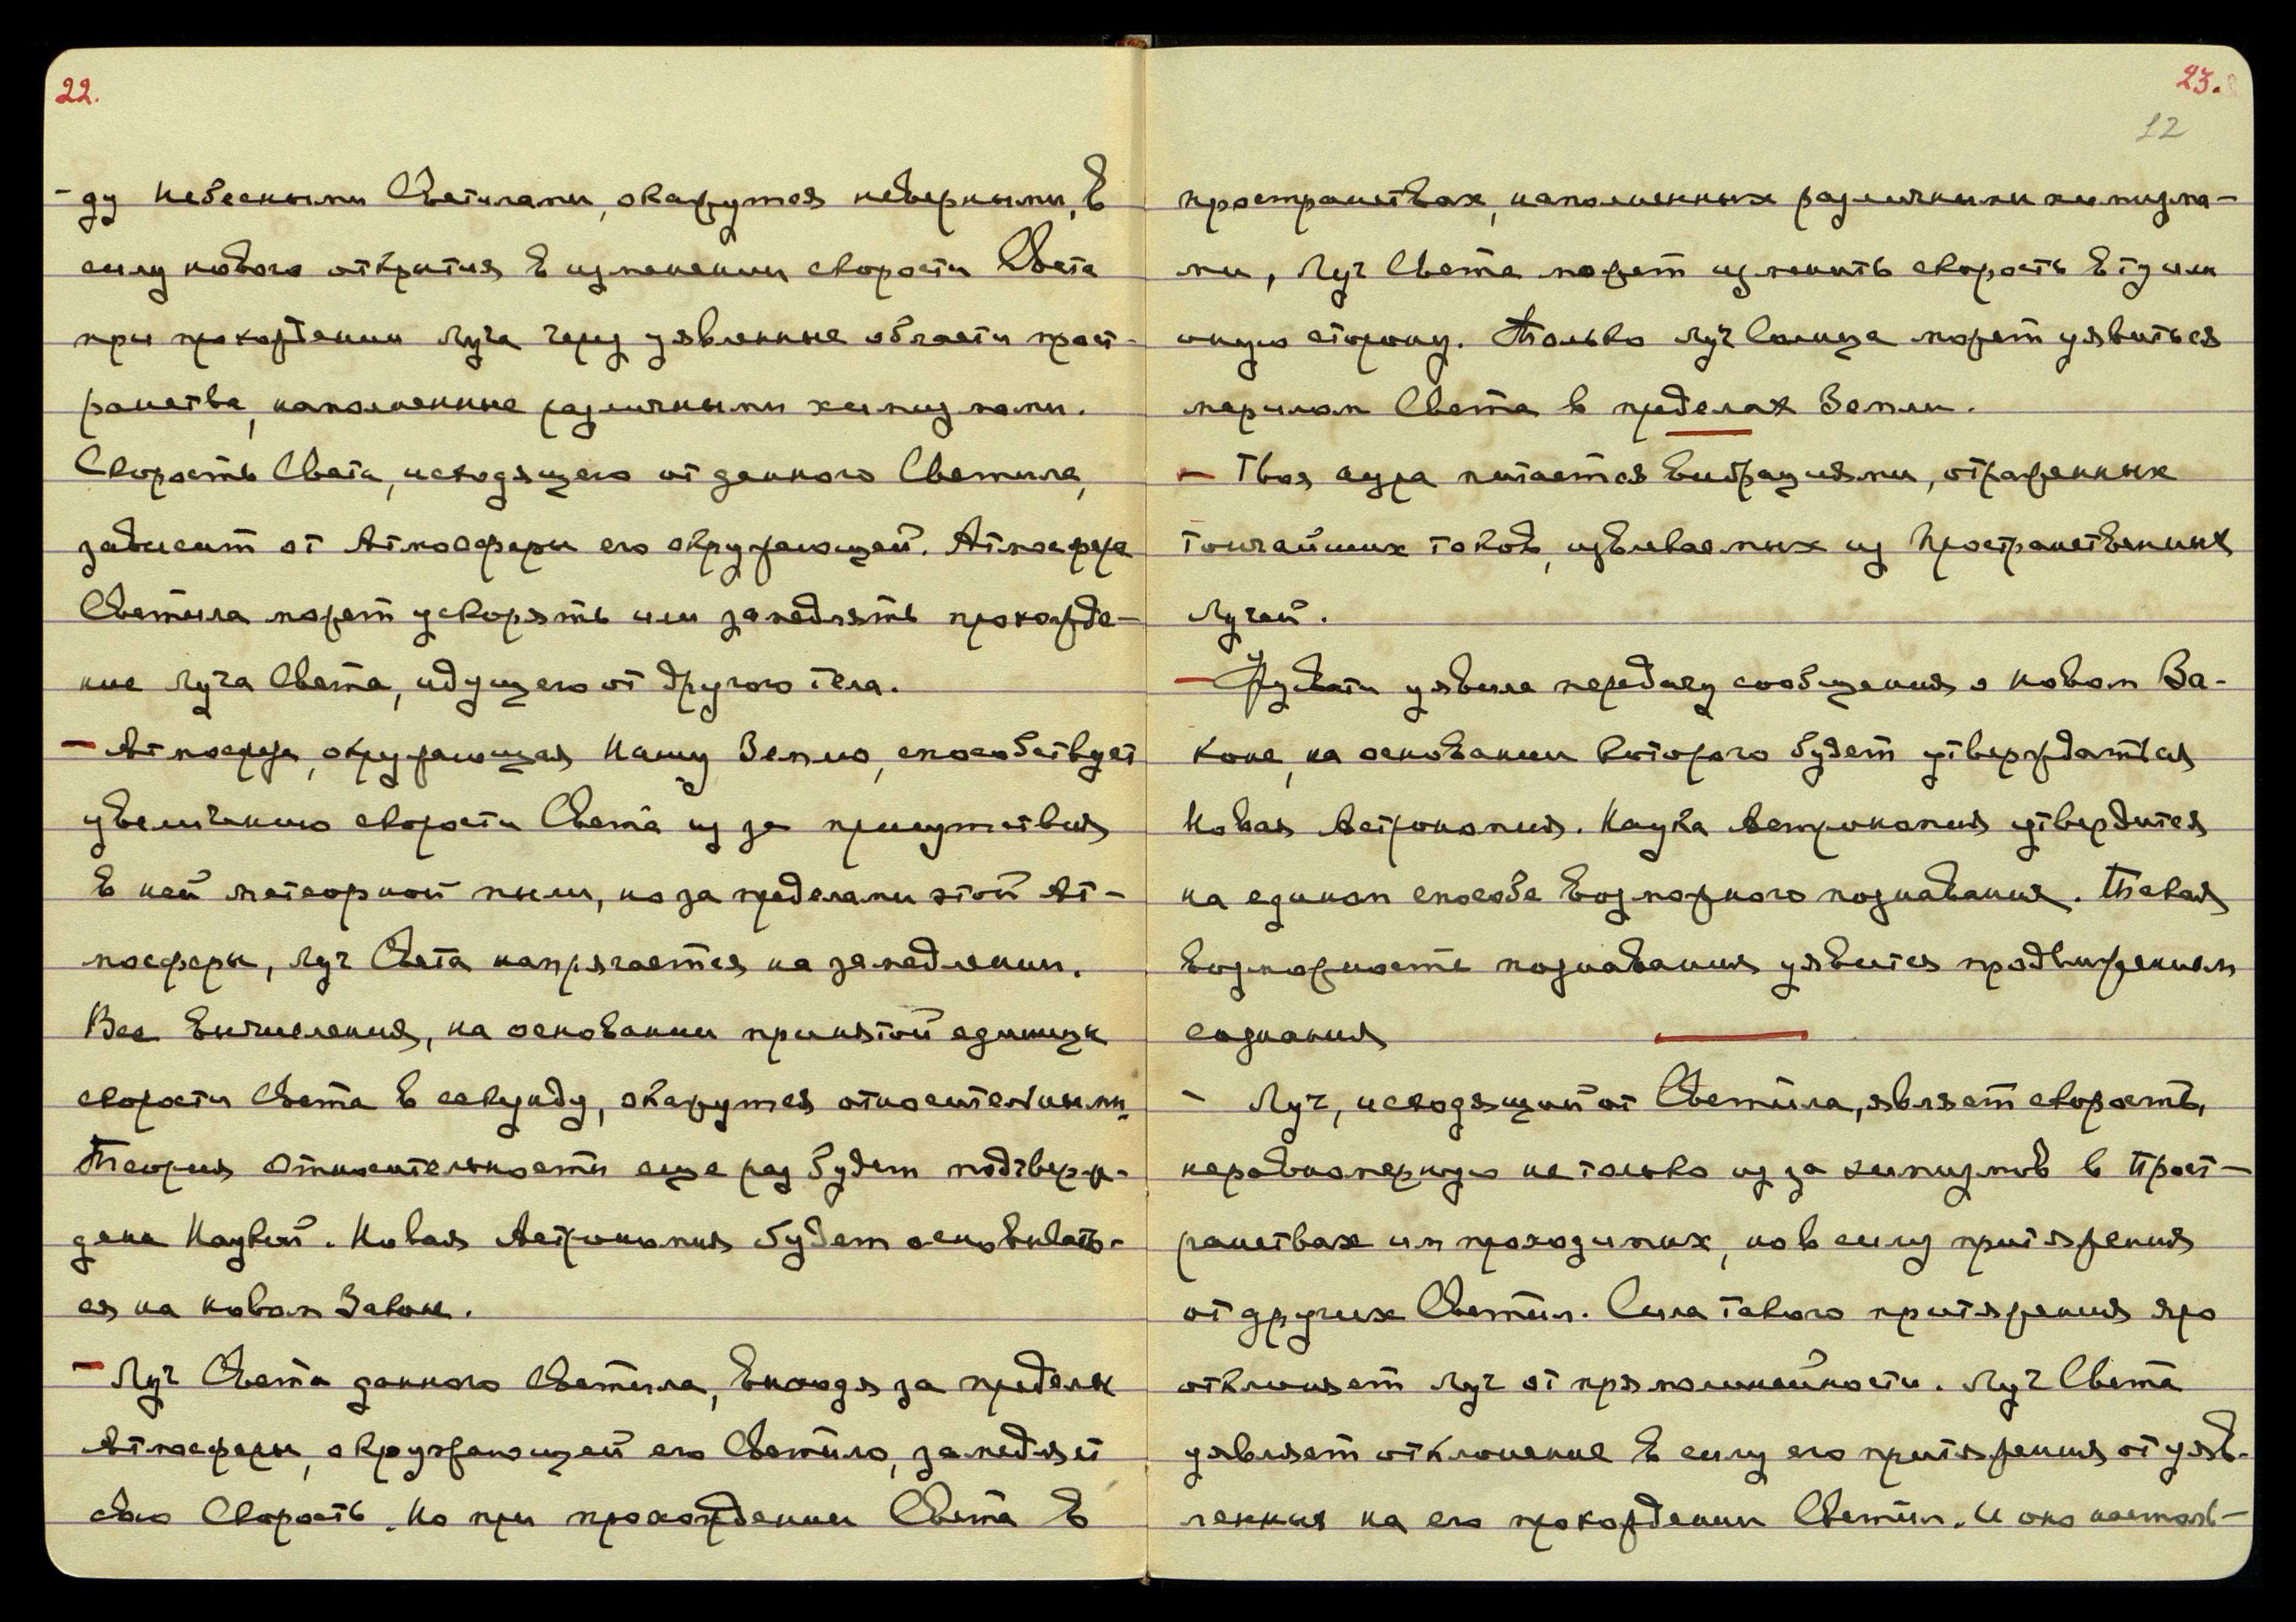 22.
-ду небесными Светилами, окажутся неверными, в
силу нового открытия в изменении скорости Света
при прохождении Луча через уявленные области прост-
ранства, наполненные различными химизмами.
Скорость Света, исходящего от данного Светила,
зависит от Атмосферы его окружающей. Атмосфера
Светила может ускорять или замедлять прохожде-
ние Луча Света, идущего от другого тела.
- Атмосфера, окружающая Нашу Землю, способствует
увеличению скорости Света из за присутствия
в ней метеорной пыли, но за пределами этой Ат-
мосферы, Луч Света напрягается на замедлении.
Все вычисления, на основании принятой единицы
скорости Света в секунду, окажутся относительными.
Теория Относительности еще раз будет подтверж-
дена Наукой. Новая Астрономия будет основывать-
ся на новом Законе.
- Луч Света данного Светила, выходя за пределы
Атмосферы, окружающей его Светило, замедляет
свою Скорость. Но при прохождении Света в
23.
12
пространствах, наполненных различными химизма-
ми, Луч Света может изменить скорость в ту или
иную сторону. Только луч Солнца может уявиться
мерилом Света в пределах Земли.
- Твоя аура питается вибрациями, отраженных
тончайших токов, извлекаемых из Пространственных
Лучей.
- уявила передачу сообщения о новом За-
коне, на основании которого будет утверждаться
Новая Астрономия. Наука Астрономия утвердится
на едином способе возможного познавания. Такая
возможность познавания уявится продвижением
сознания
- Луч, исходящий от Светила, являет скорость,
неравномерную не только из за химизмов в Прост-
ранствах им проходимых, но в силу притяжения
от других Светил. Сила такого притяжения яро
отклоняет Луч от прямолинейности. Луч Света
уявляет отклонение в силу его притяжения от уяв-
ленных на его прохождении Светил. И оно настоль-